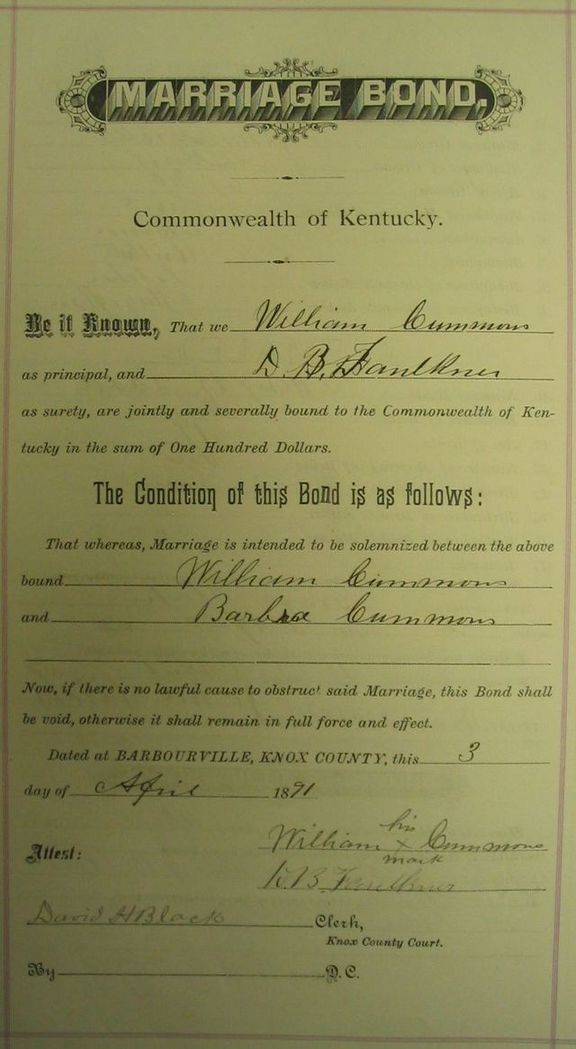 MARRIAGE BOND,
Commonwealth of Kentucky.
Be it Known, That we William Cummons
as principal, and D. B. Faulkner
as surety, are jointly and severally bound to the Commonwealth of Ken-
tucky in the sum of One Hundred Dollars.
The Condition of this Bond is as follows:
That whereas, Marriage is intended to be solemnized between the above
bound William Cummons
and Barbra Cummons
Now, if there is no lawful cause to obstruct said Marriage, this Bond shall
be void, otherwise it shall remain in full force and effect.
Dated at BARBOURVILLE, KNOX COUNTY, this 3
day of April 1891
his
Attest: William x Cummons
mark
B. Faulkner
David H Black Clerk,
Knox County Court.
By D. C.